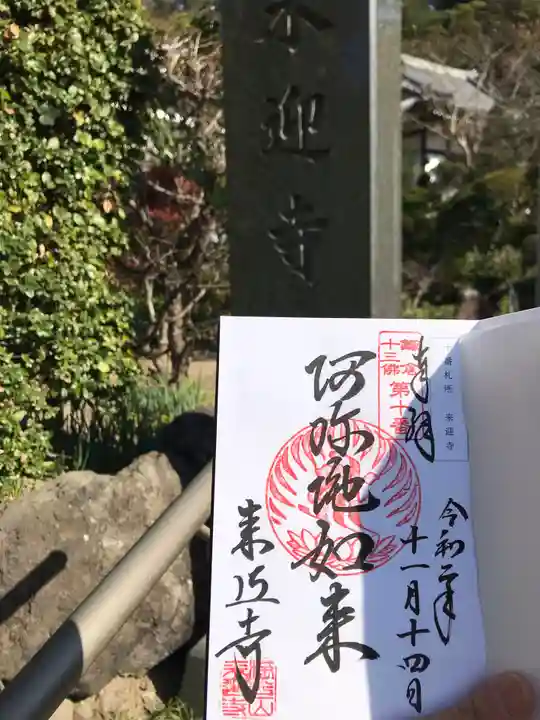 来迎寺
鎌倉
十三佛
第十番
奉拝
十番札所 来迎寺
令和二年
十一月十四日
阿弥陀如来
来迎寺